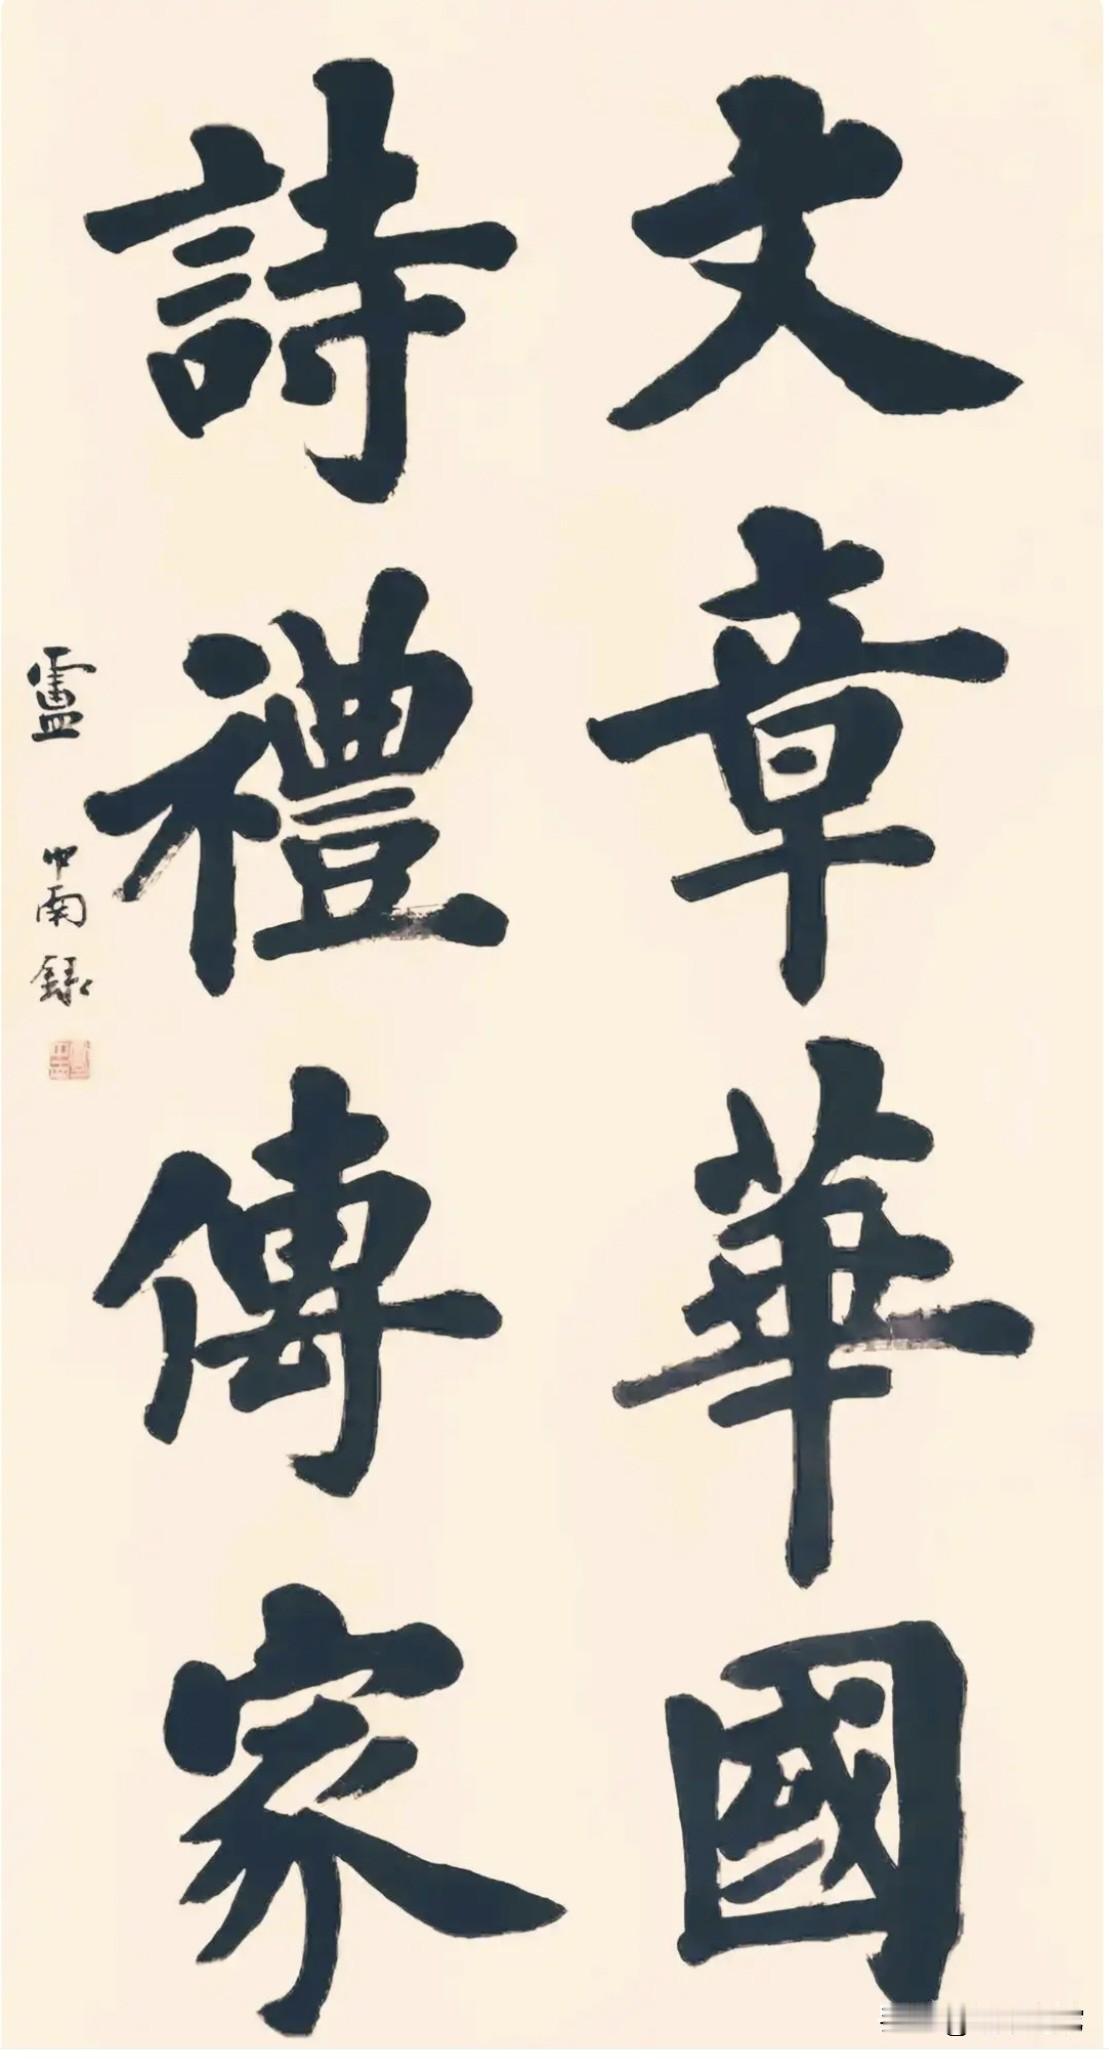 文章華國
詩禮傳家
盧中南錄